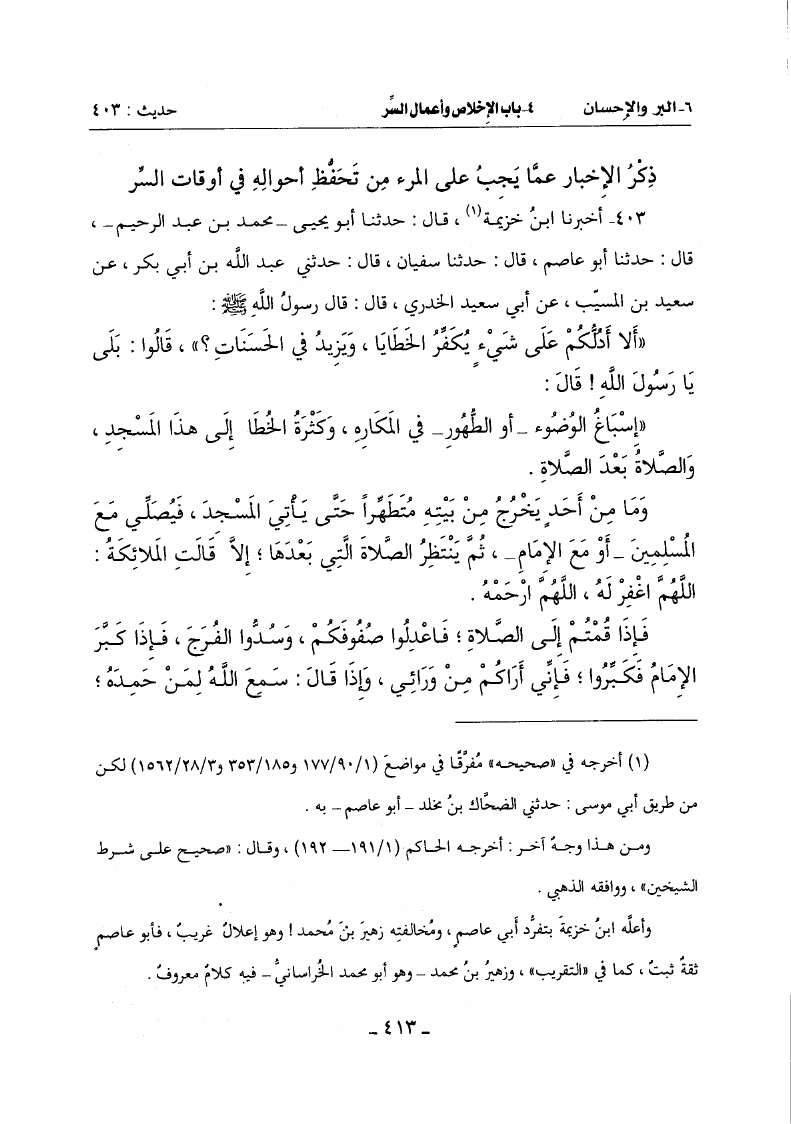 ٦-البر والإحسان ٤-باب الإخلاص وأعمال السِّر حديث : ٤٠٣
ذِكْرُ الإخبار عمَّا يَجبُ على المرء مِن تَحَفُّظِ أحوالِهِ في أوقات السرِّ
٤٠٣- أخبرنا ابنُ خزيمة(١) ، قال : حدثنا أبو يحيى -محمد بن عبد الرحيم- ،
قال : حدثنا أبو عاصم ، قال : حدثنا سفيان ، قال : حدثني عبد اللَّه بن أبي بكر ، عن
سعيد بن المسيِّب ، عن أبي سعيد الخدري ، قال : قال رسولُ اللَّه ﷺ :
«أَلا أَدُلُّكُمْ عَلَى شَيْءٍ يُكَفِّرُ الخَطَايَا ، وَيَزِيدُ في الحَسَنَاتِ؟» ، قَالُوا : بَلَى
يَا رَسُولَ اللَّهِ ! قَالَ :
«إِسْبَاغُ الوُضُوءِ -أو الطُّهُورِ- في المَكَارِهِ ، وَكَثْرَةُ الخُطَا إِلَى هَذَا المَسْجِدِ ،
وَالصَّلاةُ بَعْدَ الصَّلاةِ .
وَمَا مِنْ أَحَدٍ يَخْرُجُ مِنْ بَيْتِهِ مُتَطَهِّراً حَتَّى يَأْتِيَ المَسْجِدَ ، فَيُصَلِّي مَعَ
المُسْلِمِينَ -أَوْ مَعَ الإِمَامِ- ، ثُمَّ يَنْتَظِرُ الصَّلاةَ الَّتِي بَعْدَهَا ؛ إِلاَّ قَالَتِ المَلائِكَةُ :
اللَّهُمَّ اغْفِرْ لَهُ ، اللَّهُمَّ ارْحَمْهُ .
فَإِذَا قُمْتُمْ إِلَى الصَّلاةِ ؛ فَاعْدِلُوا صُفُوفَكُمْ ، وَسُدُّوا الفُرَجَ ، فَإِذَا كَبَّرَ
الإِمَامُ فَكَبِّرُوا ؛ فَإِنِّي أَرَاكُمْ مِنْ وَرَائِي ، وَإِذَا قَالَ : سَمِعَ اللَّهُ لِمَنْ حَمِدَهُ ؛
(١) أخرجه في «صحيحه» مُفرَّقًا في مواضعَ (١/ ٩٠/ ١٧٧ و١٨٥/ ٣٥٣ و٣/ ٢٨/ ١٥٦٢) لكن
من طريق أبي موسى : حدثني الضحَّاك بنُ مخلد - أبو عاصم - به .
ومن هذا وجهٌ آخر : أخرجه الحاكم (١/ ١٩١- ١٩٢) ، وقال : «صحيح على شرط
الشيخين» ، ووافقه الذهبي .
وأعلَّه ابنُ خزيمةَ بتفرُّد أبي عاصمٍ ، ومُخالفتِه زهيرَ بنَ مُحمد ! وهو إعلالٌ غريبٌ ، فأبو عاصمٍ
ثقةٌ ثبتٌ ، كما في «التقريب» ، وزهيرُ بنُ محمد - وهو أبو محمد الخُراسانيُّ - فيه كلامٌ معروفٌ .
- ٤١٣ -